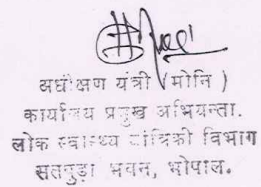 अधीक्षण यंत्री (मोनि)
कार्यालय प्रमुख अभियन्ता.
लोक स्वास्थ्य यांत्रिकी विभाग
सतपुड़ा भवन, भोपाल.